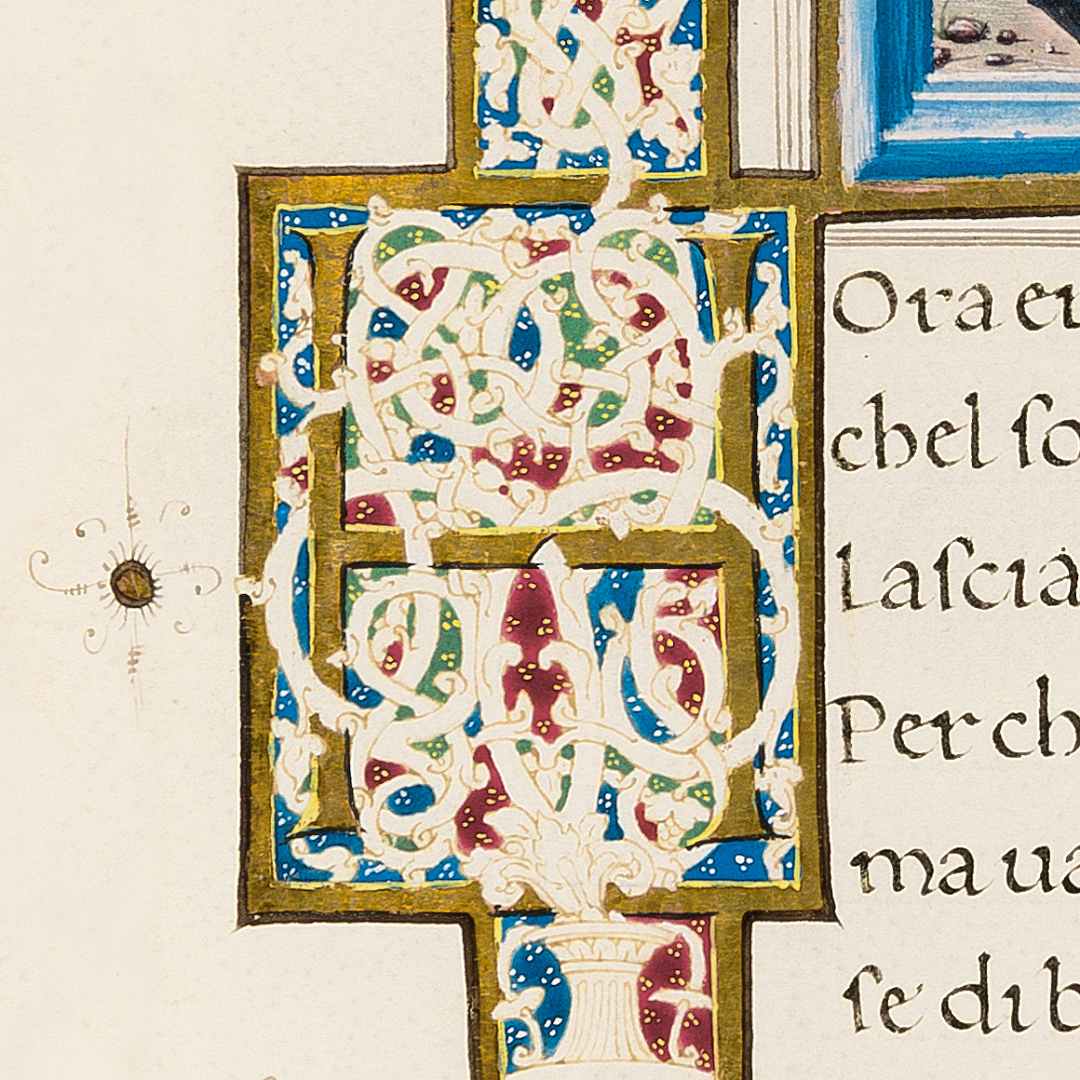 HOra er
chel ſo
Laſcia
Per ch
ma ua
ſe di b